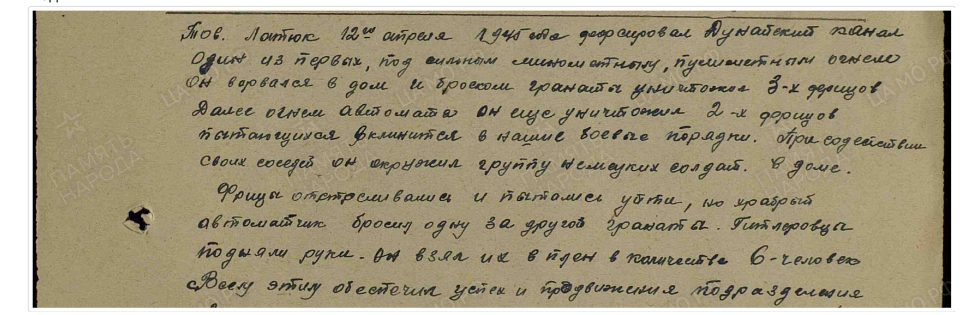 Тов. Латюк 12го апреля 1945 года форсировал Дунайский канал
Один из первых, под сильным минометным, пулиметным огнем
Он ворвался в дом и броском гранаты уничтожил 3-х фрицов
Далее огнем автомата он еще уничтожил 2-х фрицов
пытающихся вклинится в наши боевые порядки. При содействии
своих соседей он окружил группу немецких солдат. в доме.
Фрицы отстреливались и пытались уйти, но храбрый
автоматчик бросил одну за другой гранаты. Гитлеровцы
подняли руки. Он взял их в плен в количестве 6-человек
Всем этим обеспечил успех и продвижения подразделения
ПАМЯТЬ НАРОДА
ЦАМО.РФ